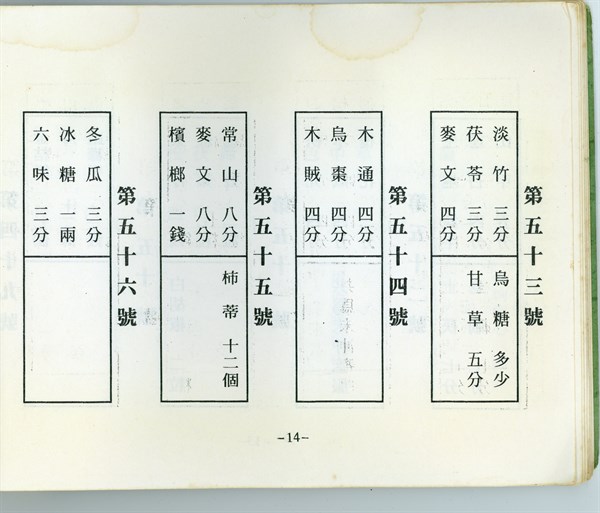 第五十三號
淡竹三分
茯苓三分
麥文四分
烏糖多少
甘草五分
第五十四號
木通四分
烏棗四分
木賊四分
第五十五號
常山八分
麥文八分
檳榔一錢
柿蒂十二個
第五十六號
冬瓜三分
冰糖一兩
六味三分
-14-